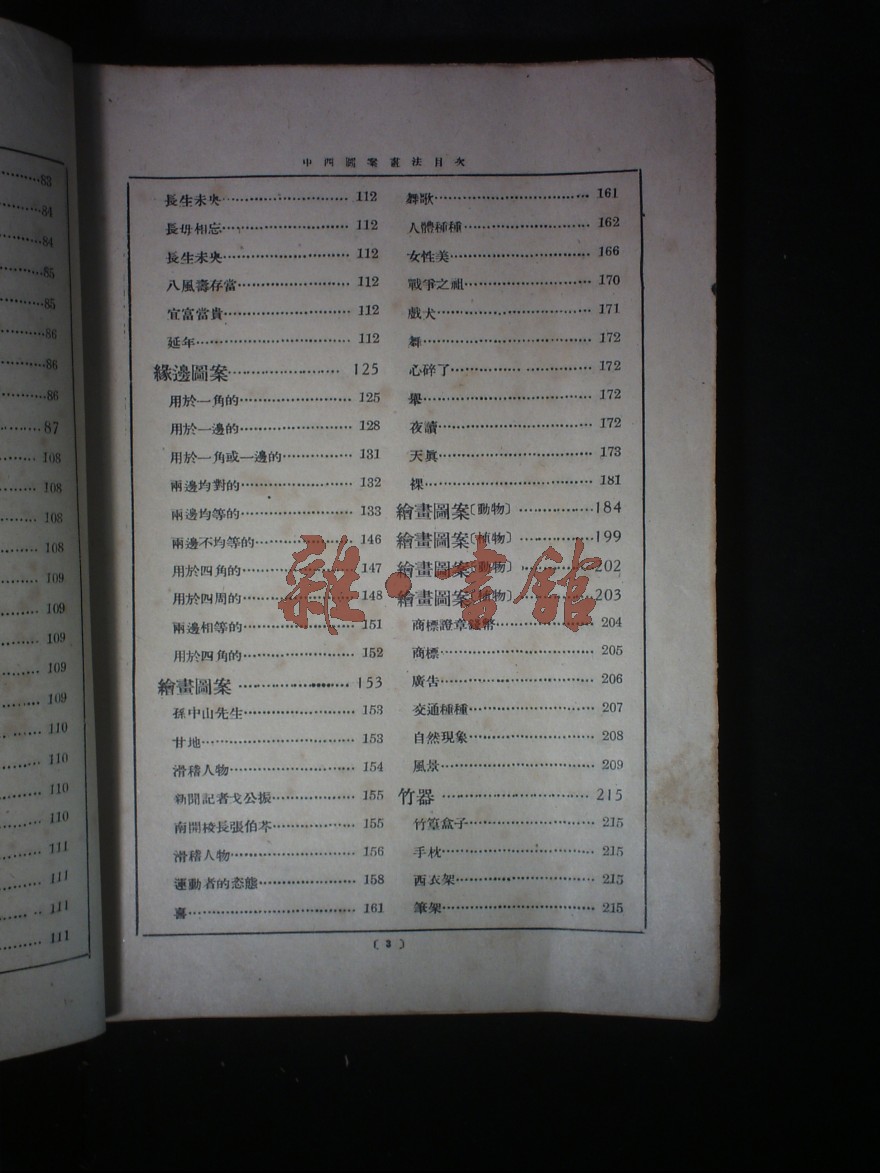 83
84
84
85
85
86
86
86
87
108
108
108
108
109
109
109
109
109
110
110
110
110
111
111
111
111
中西圖案畫法目次
長生未央 112
長毋相忘 112
長生未央 112
八風壽存當 112
宜富當貴 112
延年 112
緣邊圖案 125
用於一角的 125
用於一邊的 128
用於一角或一邊的 131
兩邊均對的 132
兩邊均等的 133
兩邊不均等的 146
用於四角的 147
用於四周的 148
兩邊相等的 151
用於四角的 152
繪畫圖案 153
孫中山先生 153
甘地 153
滑稽人物 154
新聞記者戈公振 155
南開校長張伯苓 155
滑稽人物 156
運動者的态態 158
喜 161
舞歌 161
人體種種 162
女性美 166
戰爭之祖 170
戲犬 171
舞 172
心碎了 172
172
夜讀 172
天眞 173
裸 181
繪畫圖案〔動物〕 184
繪畫圖案〔植物〕 199
繪畫圖案〔動物〕 202
繪畫圖案〔植物〕 203
商標證章錢幣 204
商標 205
廣告 206
交通種種 207
自然現象 208
風景 209
竹器 215
竹篁盒子 215
手枕 215
西衣架 215
筆架 215
(3)
雜·書館